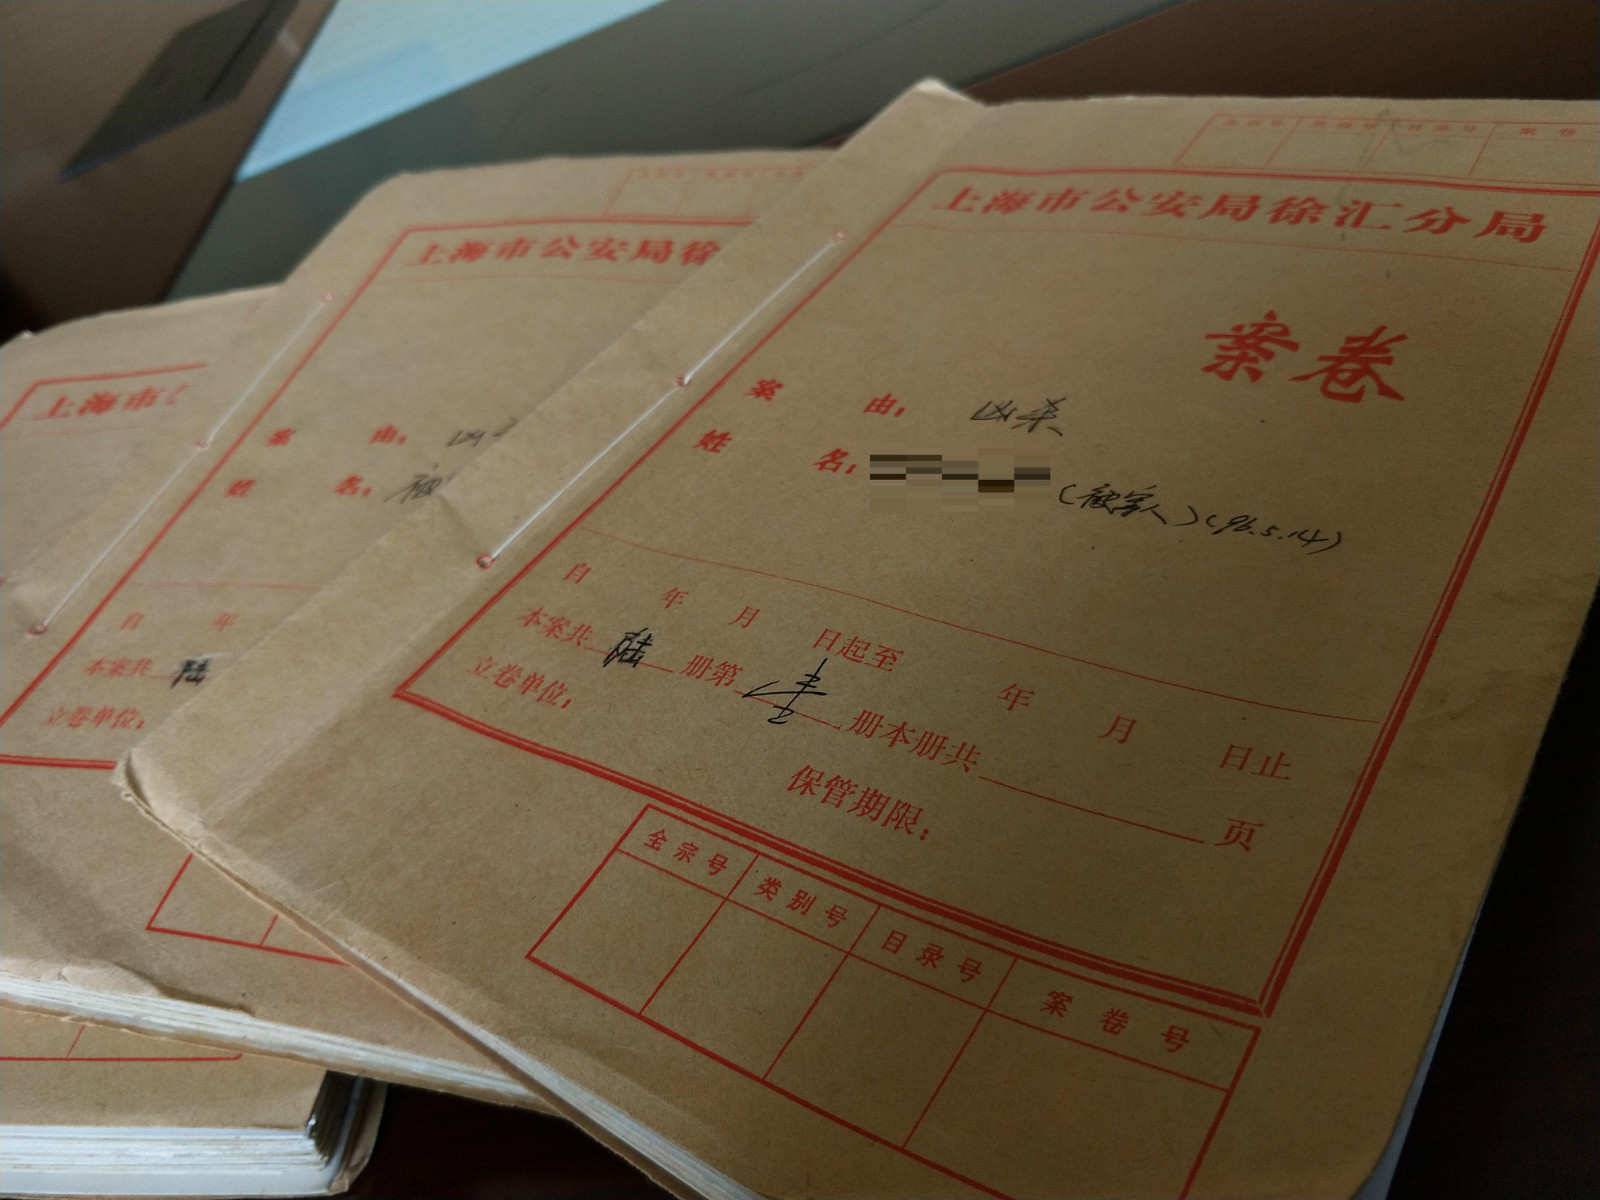 上海市公安局徐汇分局
案卷
案 由： 凶杀
姓 名： （被害人）（96.5.14）
自 年 月 日起至 年 月 日止
本案共 陆 册第 壹 册本册共 页
立卷单位：
保管期限：
全宗号 类别号 目录号 案卷号
上海市公安局徐
案 由： 凶
姓 名： 被
自 年
本案共 陆
立卷单位：
上海市